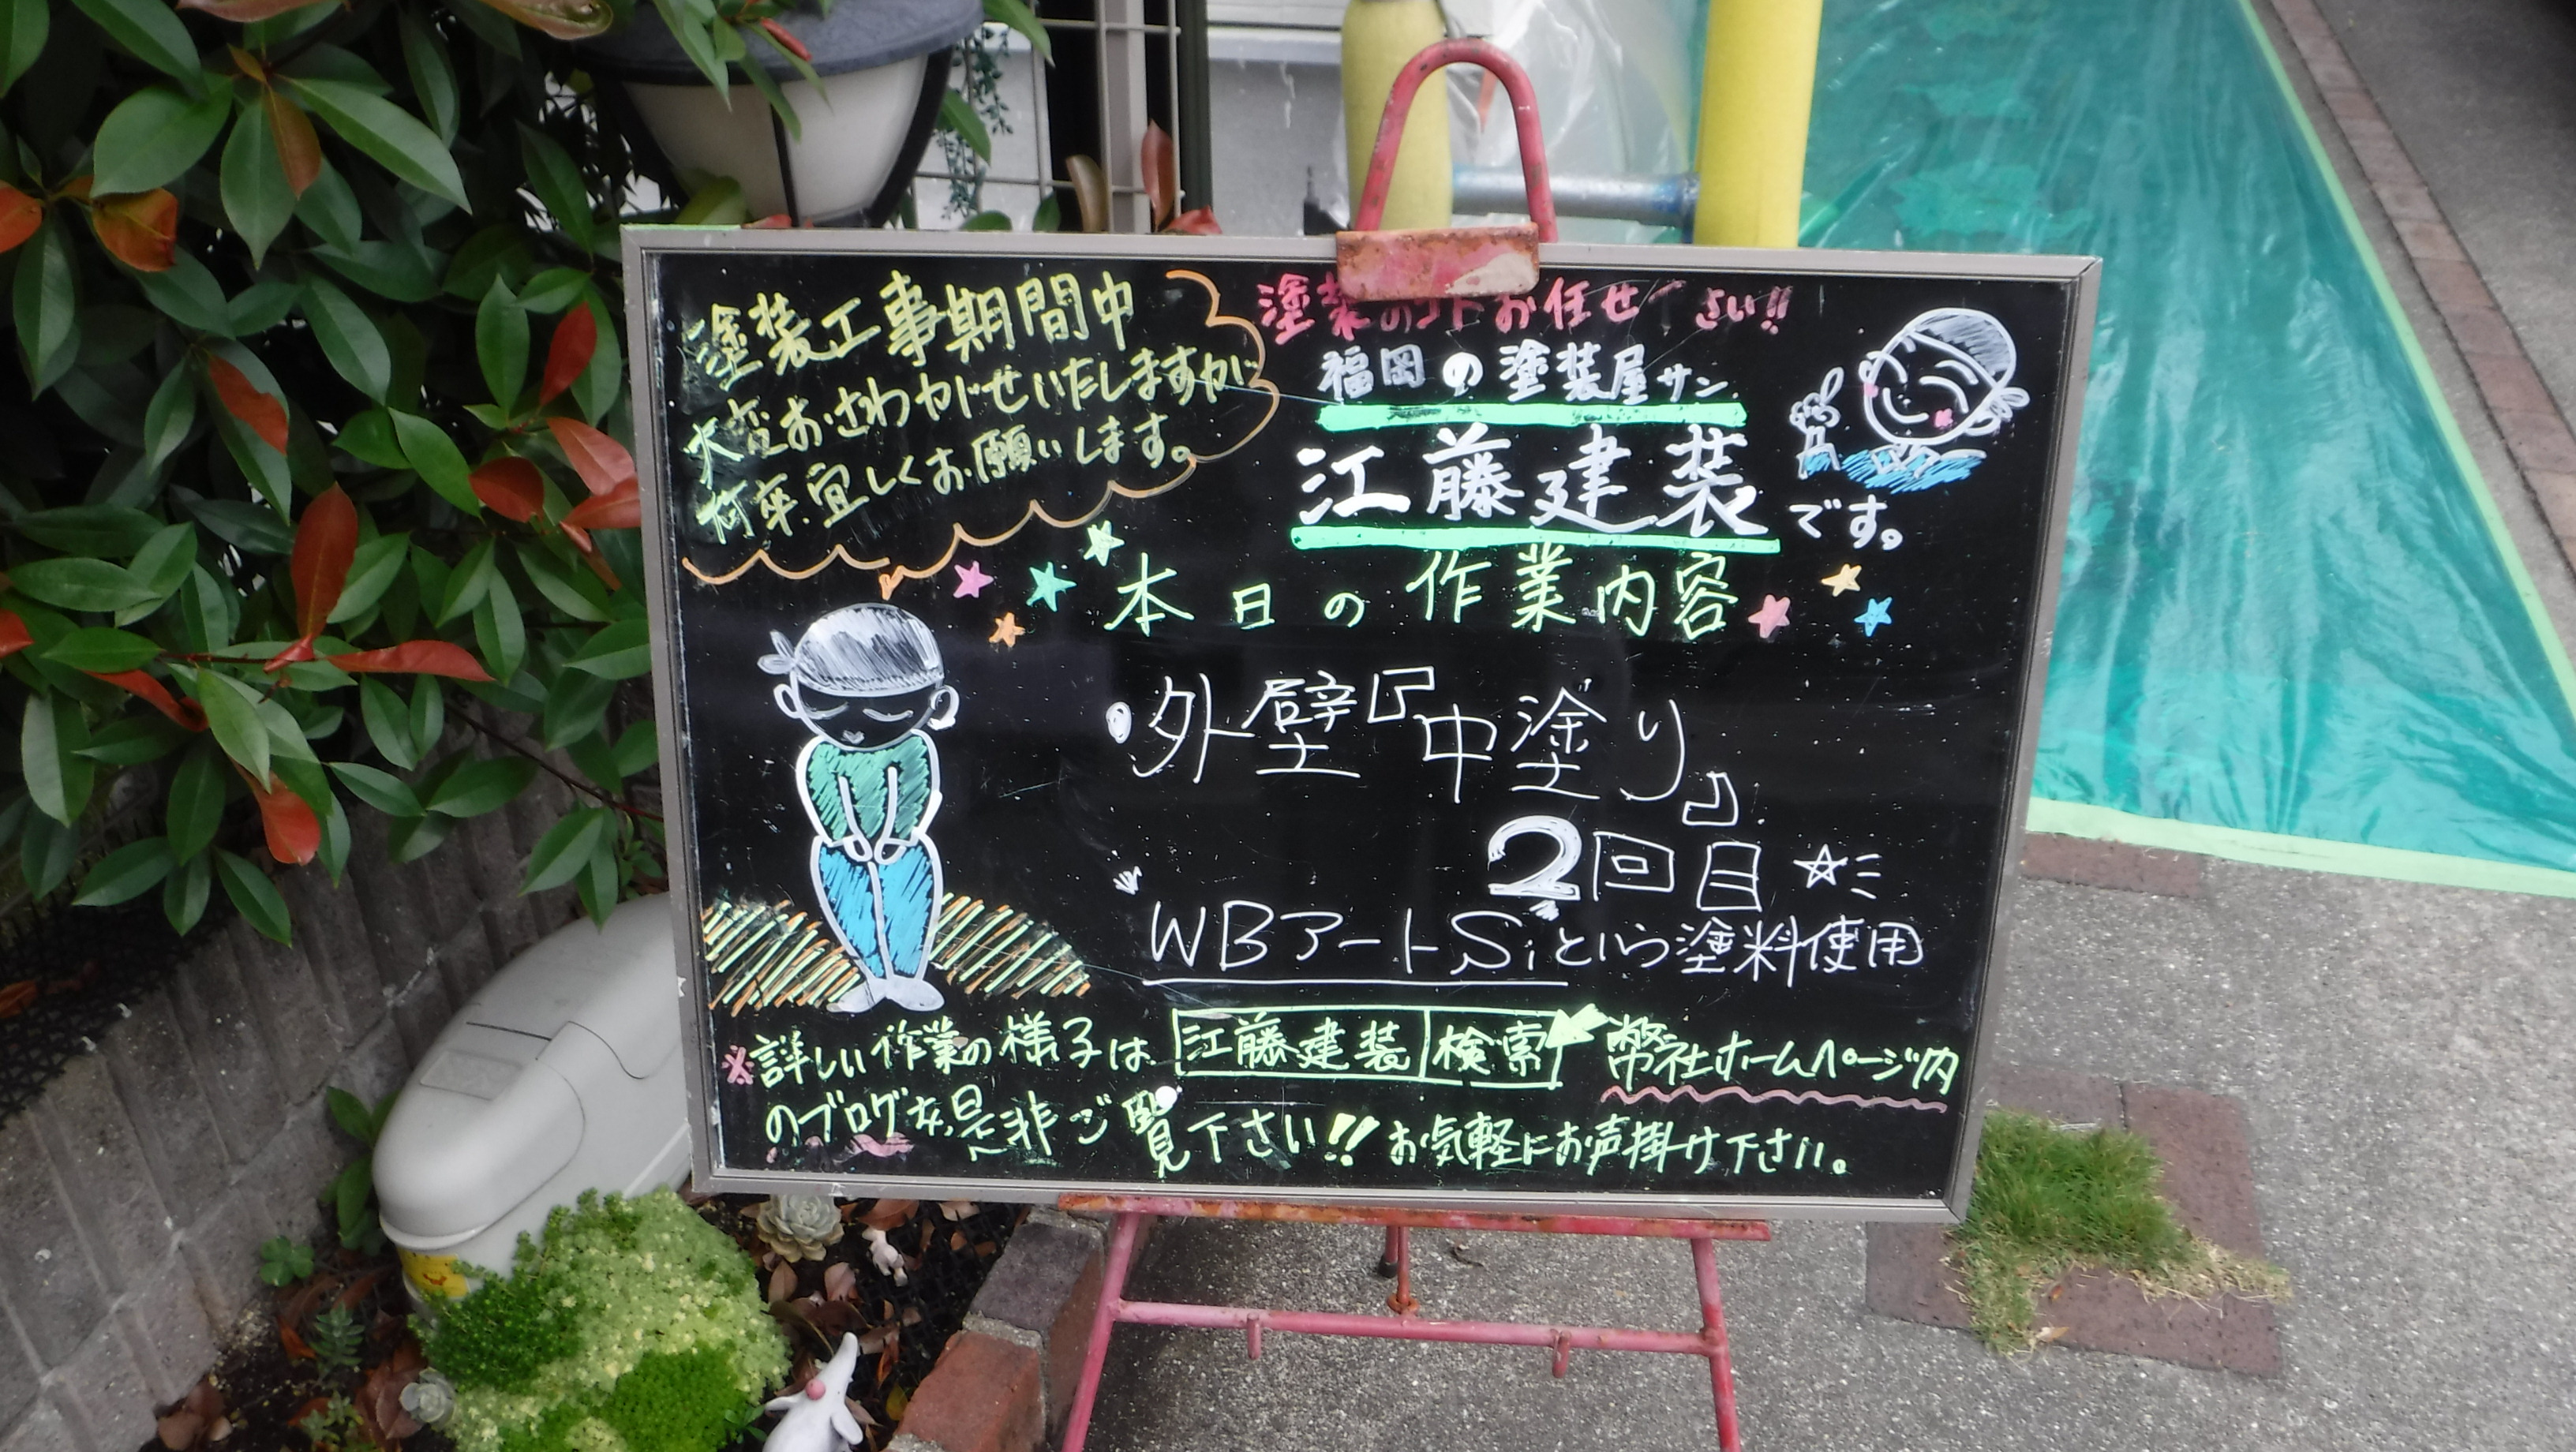 塗装工事期間中
大変おさわがせいたしますが
何卒、宜しくお願いします。
塗装のコトお任せ下さい!!
福岡の塗装屋サン
江藤建装です。
本日の作業内容
・外壁『中塗り』
2回目☆
WBアートSiという塗料使用
※詳しい作業の様子は 江藤建装 検索 弊社ホームページ内
のブログを是非ご覧下さい!! お気軽にお声掛け下さい。